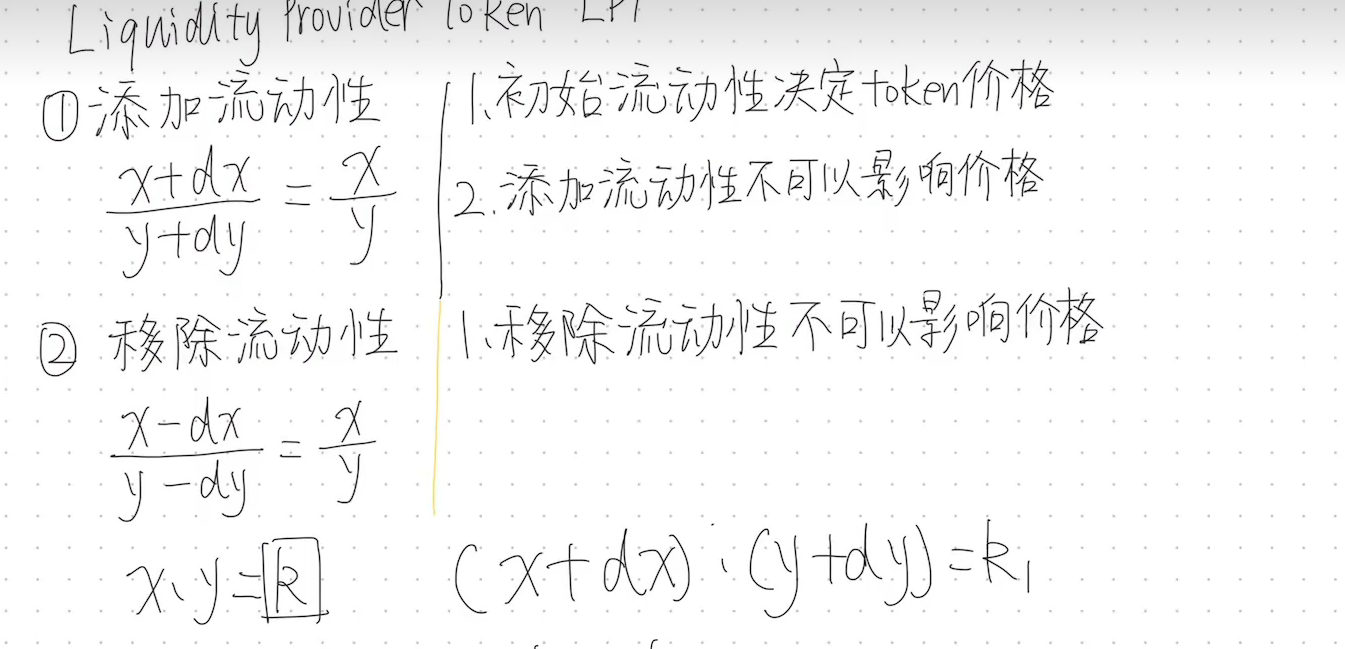 Liquidity Provider Token LPT
① 添加流动性
x+dx / y+dy = x / y
1. 初始流动性决定token价格
2. 添加流动性不可以影响价格
② 移除流动性
x-dx / y-dy = x / y
1. 移除流动性不可以影响价格
x·y=k
(x+dx)·(y+dy)=k₁